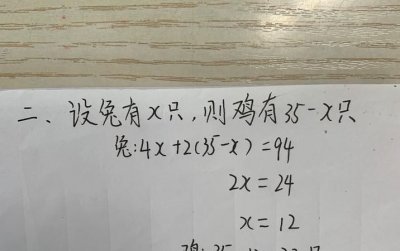 二、设兔有x只,则鸡有35-x只
兔:4x+2(35-x)=94
2x=24
x=12